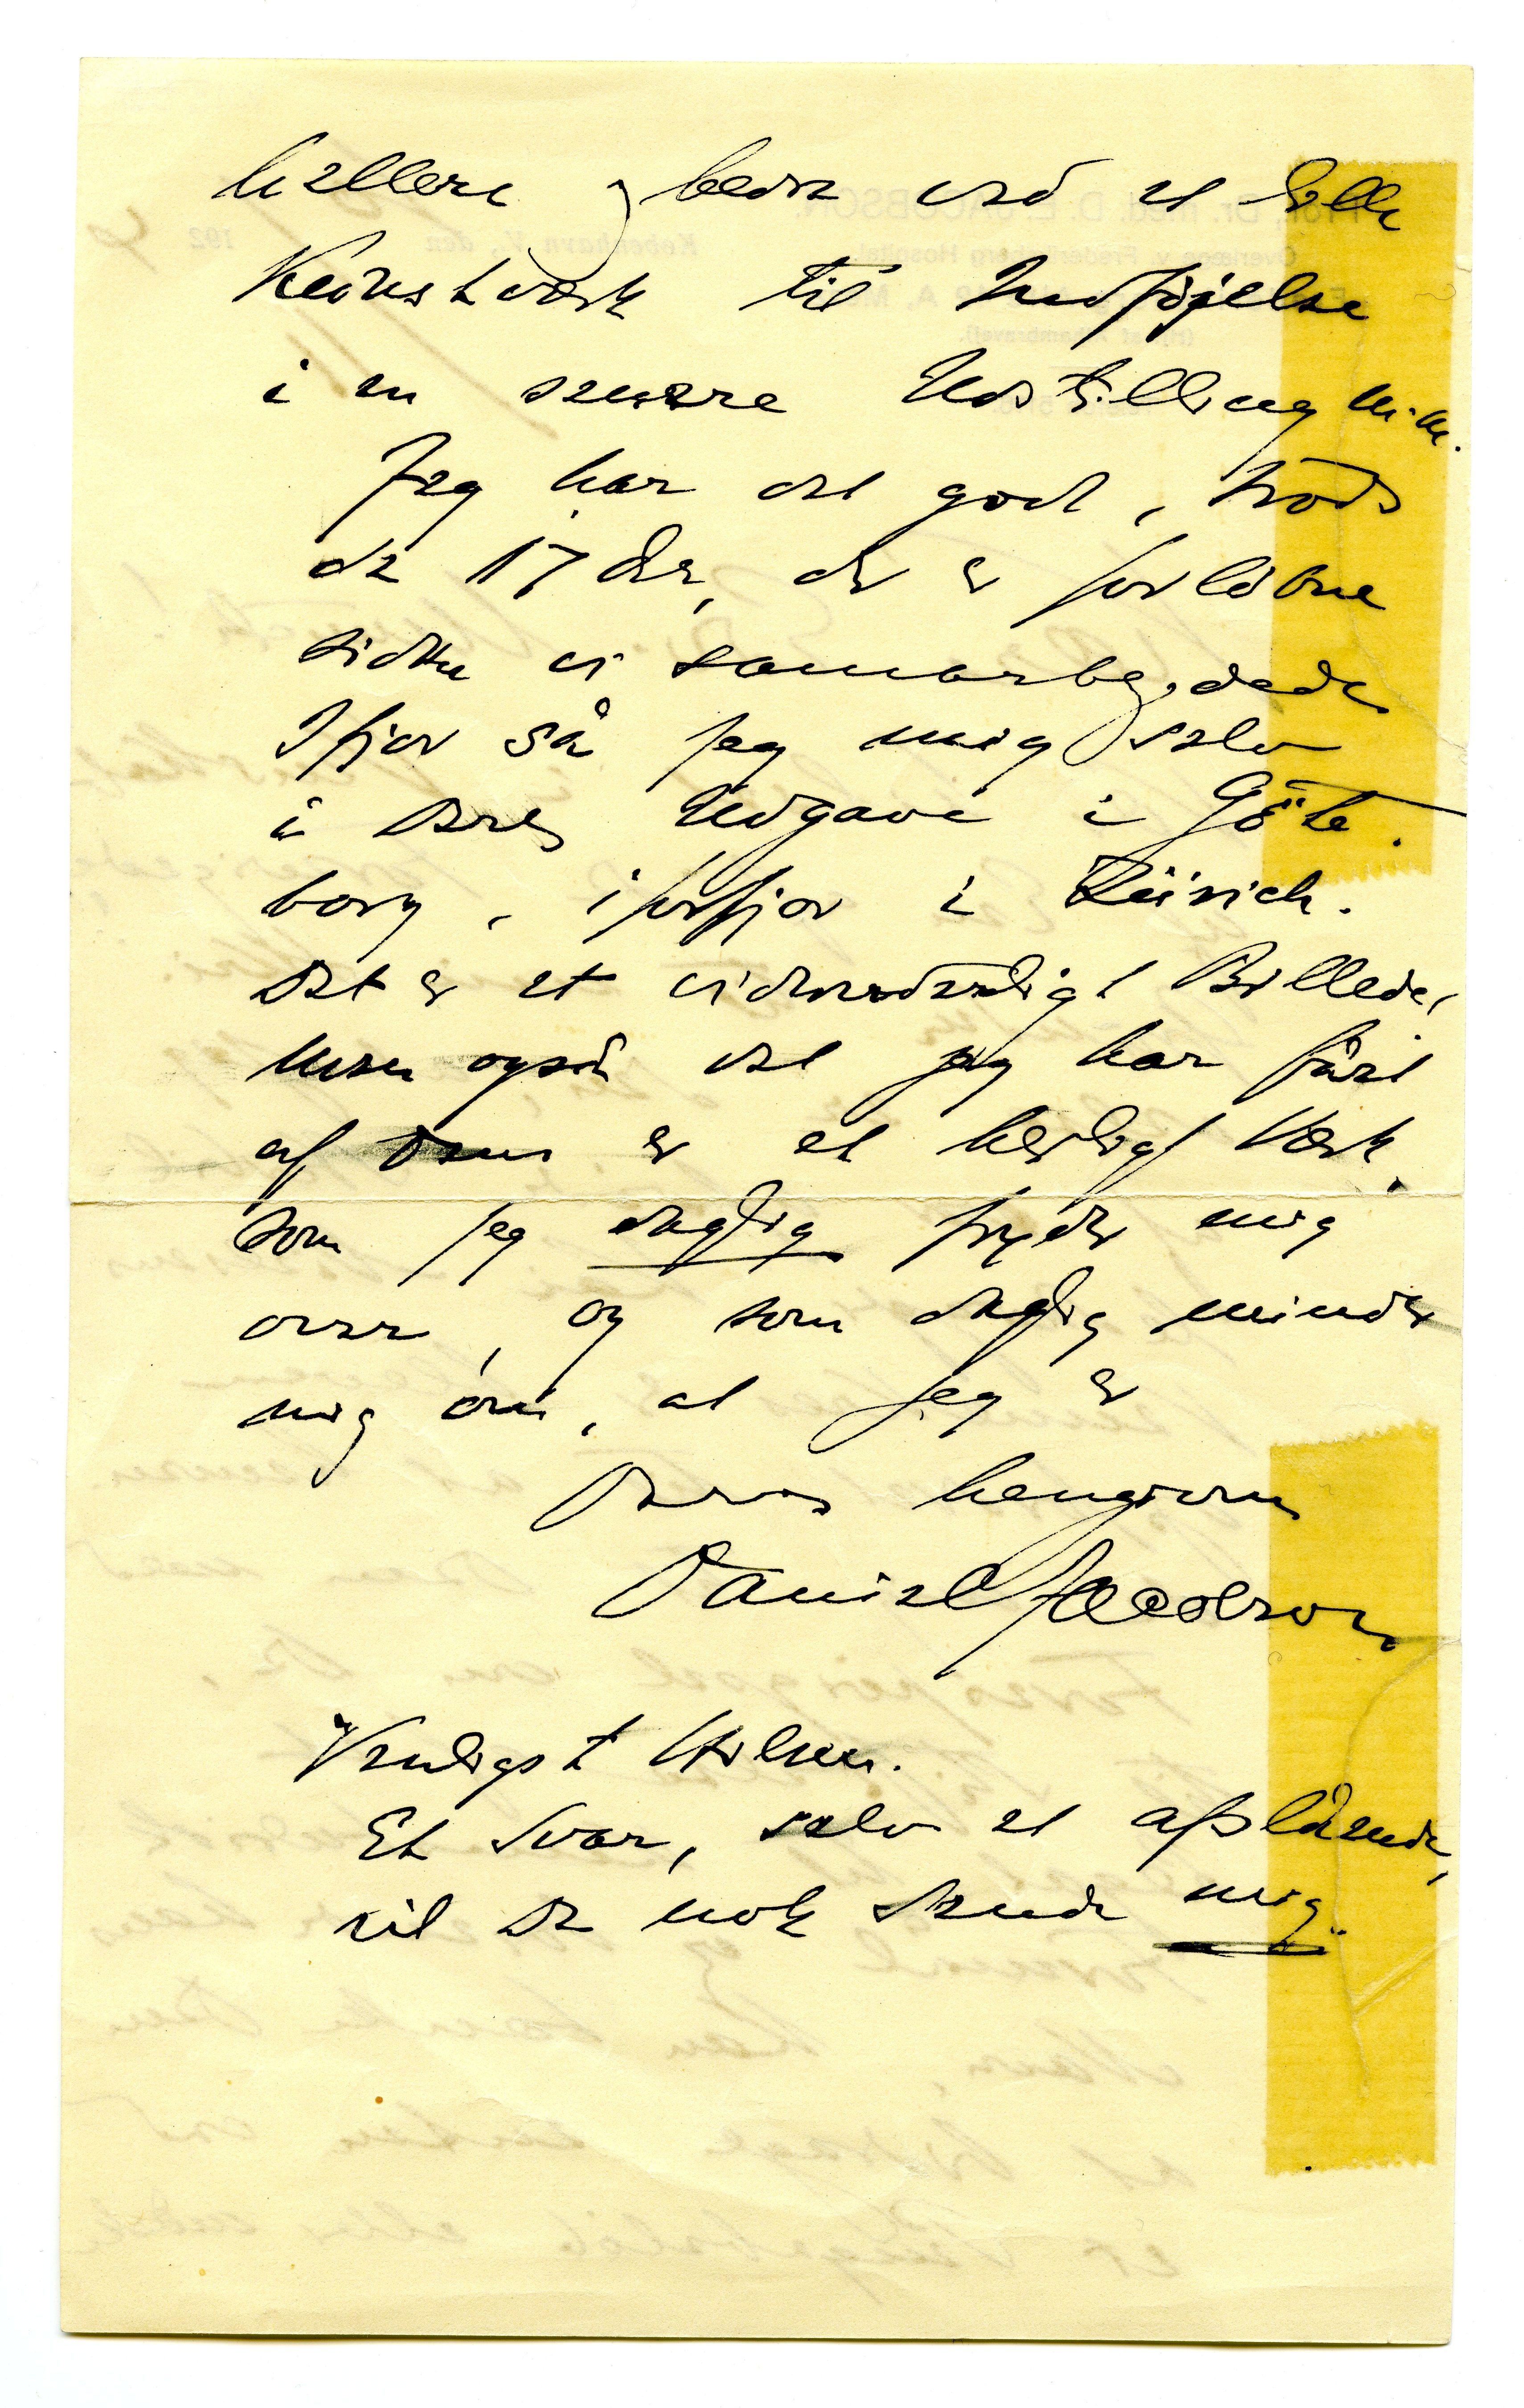 hellere og bedre ved et lille
Kunstværk til Indføjelse
i en senere Udstilling m.m.
Jeg har det godt, trods
de 17 År, der er forløbne
siden vi samarbejdede
Ifjor så jeg mig selv
i Deres Udgave i Göte-
borg, iforfjor i Zürich.
Det er et vidunderligt Billede,
men også det jeg har fået
af Dem er et herligt Værk,
som jeg daglig fryder mig
over, og som daglig minder
mig om, at jeg er
Deres hengivne
Daniel Jacobson
Venligst Hilsen.
Et Svar, selv et afslående,
vil De nok sende mig.